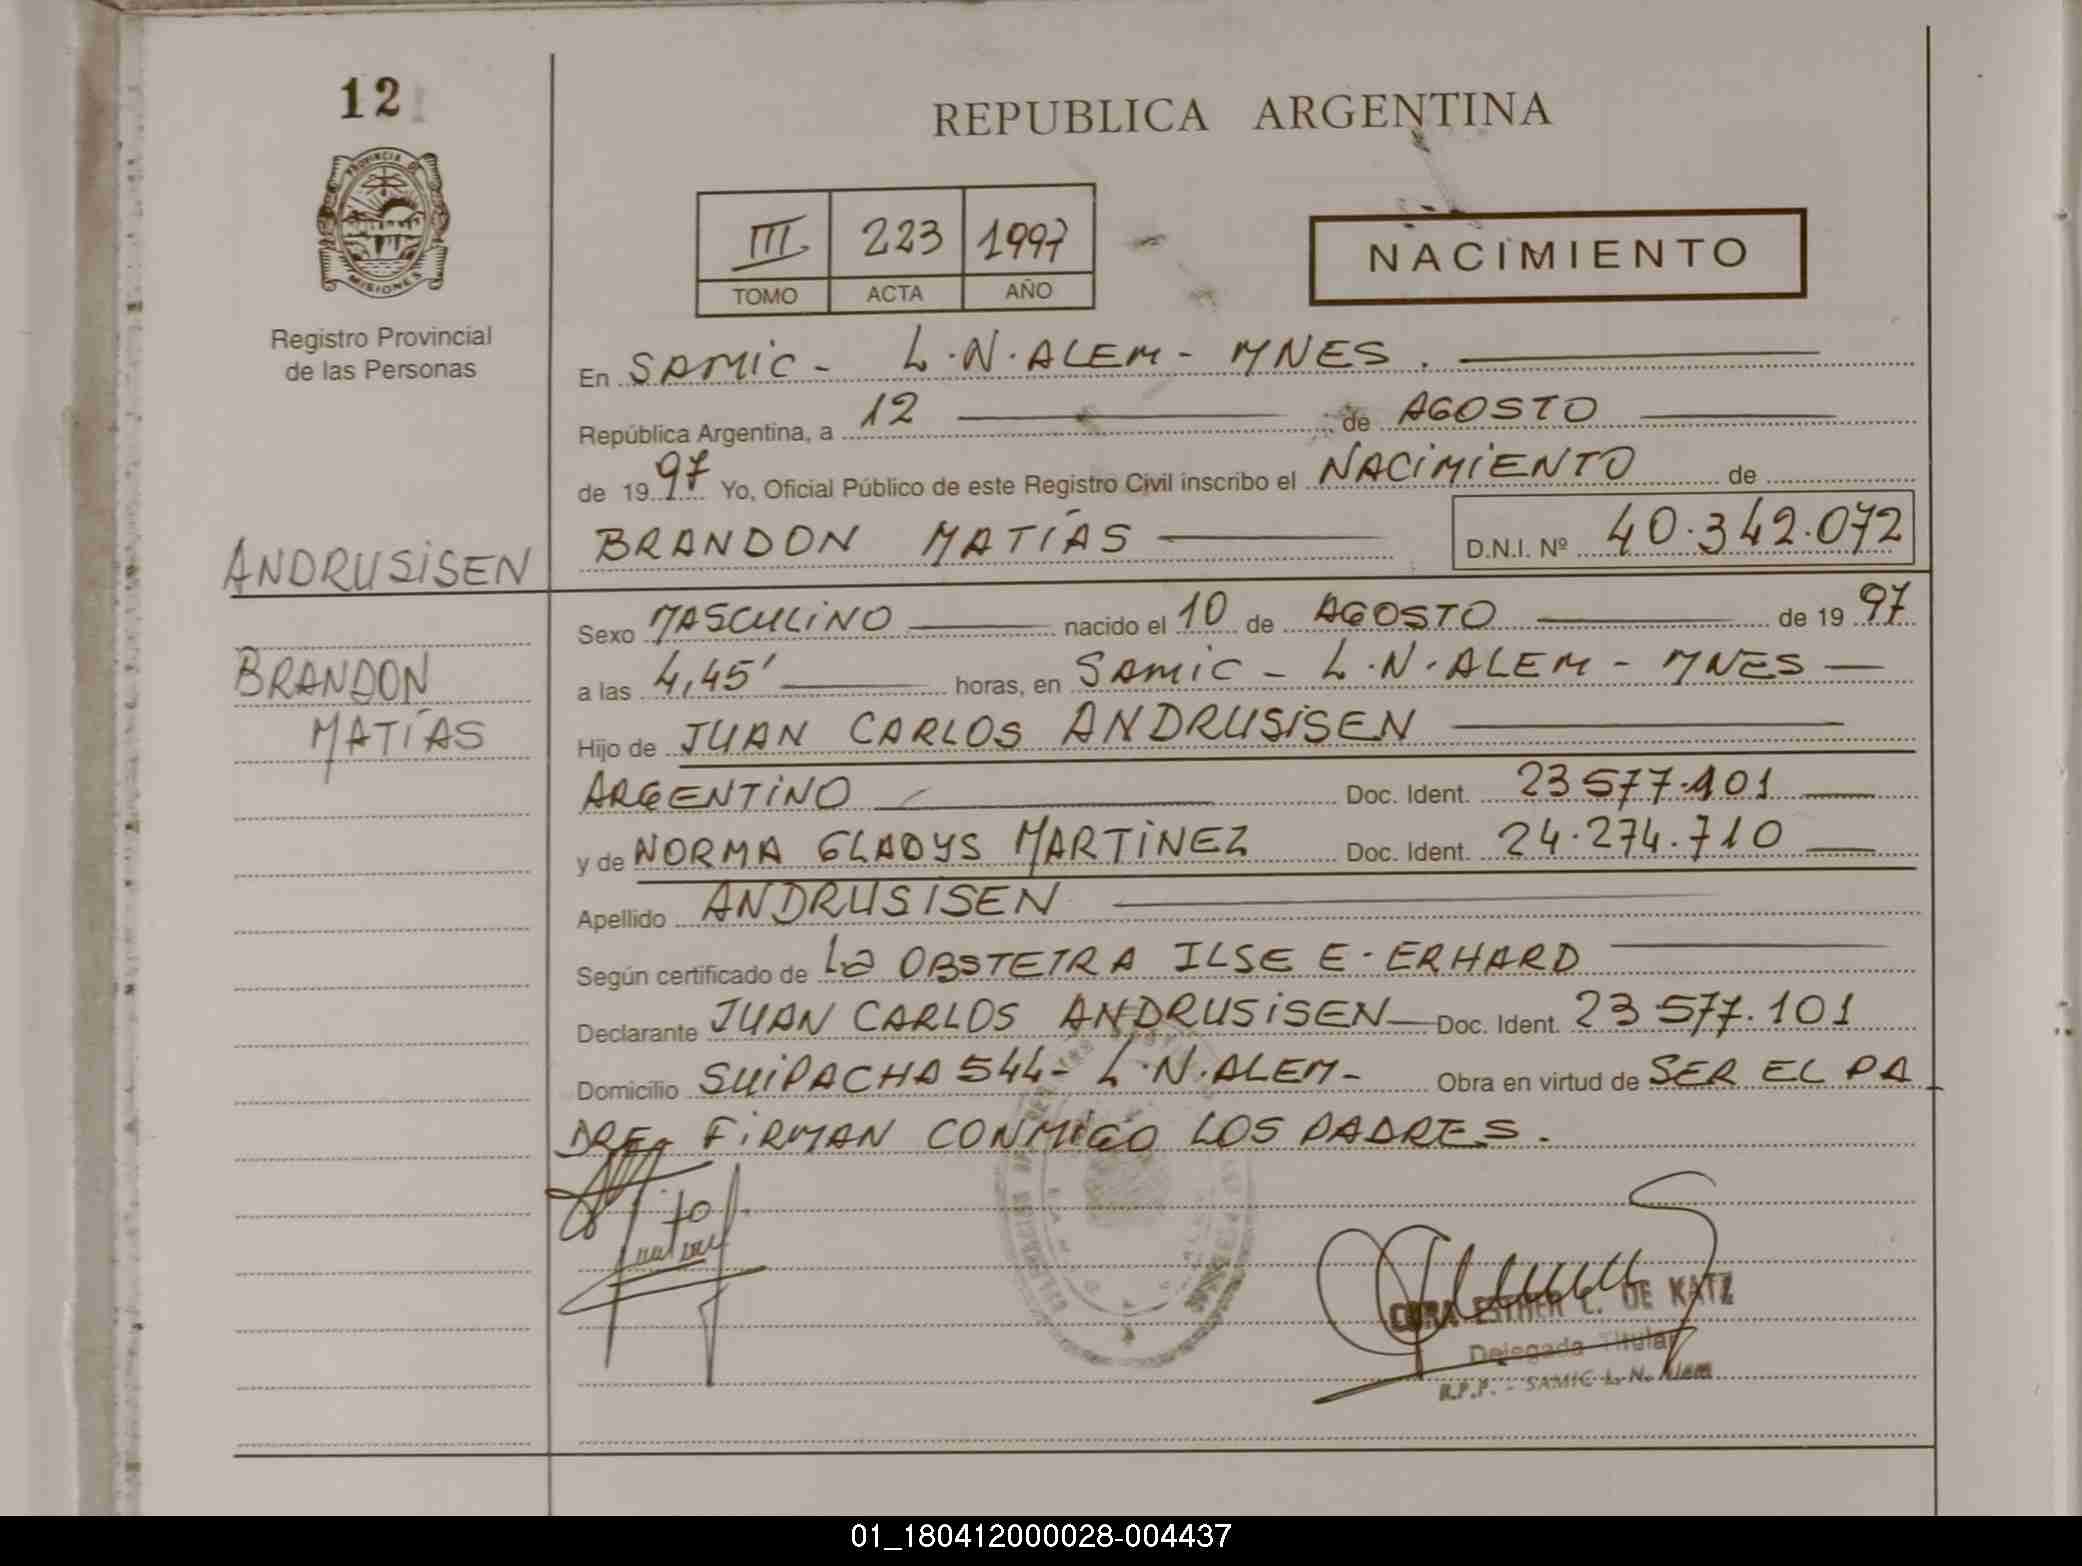 12
PROVINCIA DE
MISIONES
Registro Provincial
de las Personas
ANDRUSISEN
BRANDON
MATÍAS
REPUBLICA ARGENTINA
III 223 1997
TOMO ACTA AÑO
NACIMIENTO
En SAMIC - L.N.ALEM - MNES.
República Argentina, a 12 de AGOSTO
de 1997 Yo, Oficial Público de este Registro Civil inscribo el NACIMIENTO de
BRANDON MATÍAS D.N.I. Nº 40.342.072
Sexo MASCULINO nacido el 10 de AGOSTO de 1997
a las 4,45' horas, en SAMIC - L.N.ALEM - MNES
Hijo de JUAN CARLOS ANDRUSISEN
ARGENTINO Doc. Ident. 23577.101
y de NORMA GLADYS MARTINEZ Doc. Ident. 24.274.710
Apellido ANDRUSISEN
Según certificado de La OBSTETRA ILSE E. ERHARD
Declarante JUAN CARLOS ANDRUSISEN Doc. Ident. 23577.101
Domicilio SUIPACHA 544- L.N.ALEM- Obra en virtud de SER EL PA
DRE, FIRMAN CONMIGO LOS PADRES.
ESTHER C. DE KATZ
Delegada Titular
R.P.P. - SAMIC L. N. Alem
01_180412000028-004437